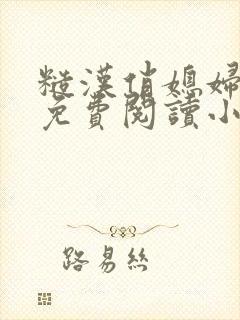 糙漢俏媳婦
免費閱讀小
路易絲